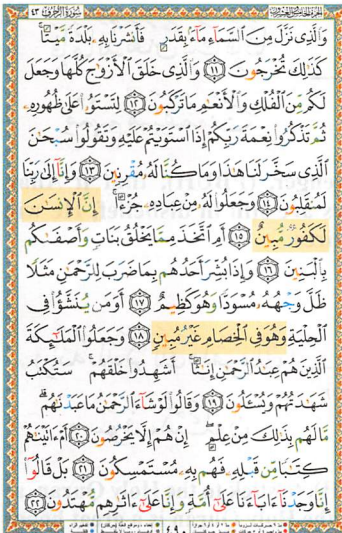 سورة الزخرف ٤٣
وَالَّذِي نَزَّلَ مِنَ السَّمَاءِ مَاءً بِقَدَرٍ فَأَنشَرْنَا بِهِ بَلْدَةً مَّيْتًا
كَذَٰلِكَ تُخْرَجُونَ ١١ وَالَّذِي خَلَقَ الْأَزْوَاجَ كُلَّهَا وَجَعَلَ
لَكُم مِّنَ الْفُلْكِ وَالْأَنْعَامِ مَا تَرْكَبُونَ ١٢ لِتَسْتَوُوا عَلَىٰ ظُهُورِهِ
ثُمَّ تَذْكُرُوا نِعْمَةَ رَبِّكُمْ إِذَا اسْتَوَيْتُمْ عَلَيْهِ وَتَقُولُوا سُبْحَانَ
الَّذِي سَخَّرَ لَنَا هَٰذَا وَمَا كُنَّا لَهُ مُقْرِنِينَ ١٣ وَإِنَّا إِلَىٰ رَبِّنَا
لَمُنقَلِبُونَ ١٤ وَجَعَلُوا لَهُ مِنْ عِبَادِهِ جُزْءًا إِنَّ الْإِنسَانَ
لَكَفُورٌ مُّبِينٌ ١٥ أَمِ اتَّخَذَ مِمَّا يَخْلُقُ بَنَاتٍ وَأَصْفَاكُم
بِالْبَنِينَ ١٦ وَإِذَا بُشِّرَ أَحَدُهُم بِمَا ضَرَبَ لِلرَّحْمَٰنِ مَثَلًا
ظَلَّ وَجْهُهُ مُسْوَدًّا وَهُوَ كَظِيمٌ ١٧ أَوَمَن يُنَشَّأُ فِي
الْحِلْيَةِ وَهُوَ فِي الْخِصَامِ غَيْرُ مُبِينٍ ١٨ وَجَعَلُوا الْمَلَائِكَةَ
الَّذِينَ هُمْ عِبَادُ الرَّحْمَٰنِ إِنَاثًا أَشَهِدُوا خَلْقَهُمْ سَتُكْتَبُ
شَهَادَتُهُمْ وَيُسْأَلُونَ ١٩ وَقَالُوا لَوْ شَاءَ الرَّحْمَٰنُ مَا عَبَدْنَاهُم
مَّا لَهُم بِذَٰلِكَ مِنْ عِلْمٍ إِنْ هُمْ إِلَّا يَخْرُصُونَ ٢٠ أَمْ آتَيْنَاهُمْ
كِتَابًا مِّن قَبْلِهِ فَهُم بِهِ مُسْتَمْسِكُونَ ٢١ بَلْ قَالُوا
إِنَّا وَجَدْنَا آبَاءَنَا عَلَىٰ أُمَّةٍ وَإِنَّا عَلَىٰ آثَارِهِم مُّهْتَدُونَ ٢٢
٤٩٠